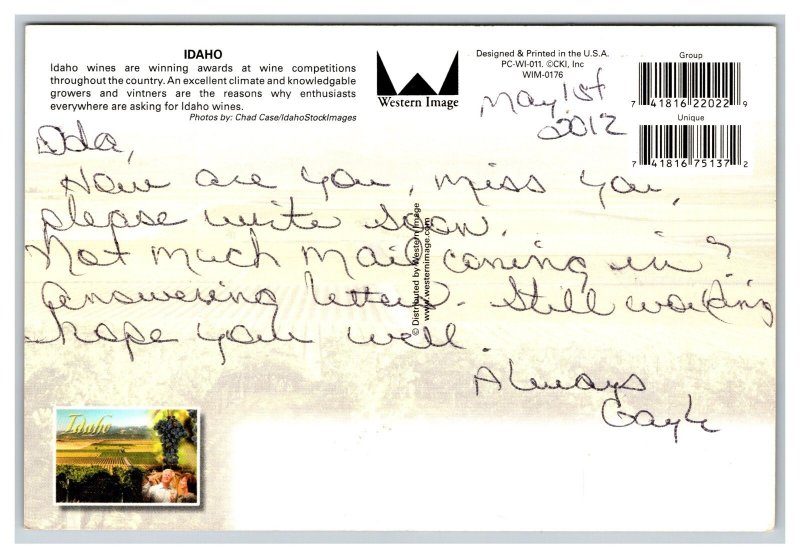 IDAHO
Idaho wines are winning awards at wine competitions
throughout the country. An excellent climate and knowledgable
growers and vintners are the reasons why enthusiasts
everywhere are asking for Idaho wines.
Photos by: Chad Case/IdahoStockImages
Western Image
Designed & Printed in the U.S.A.
PC-WI-011. ©CKI, Inc
WIM-0176
Group
7 41816 22022 9
Unique
7 41816 75137 2
May 1st
2012
Oda,
How are you, miss you,
please write soon.
Not much mail coming in?
answering letters. Still working
hope your well.
Always
Gayle
© Distributed by Western Image
www.westernimage.com
Idaho